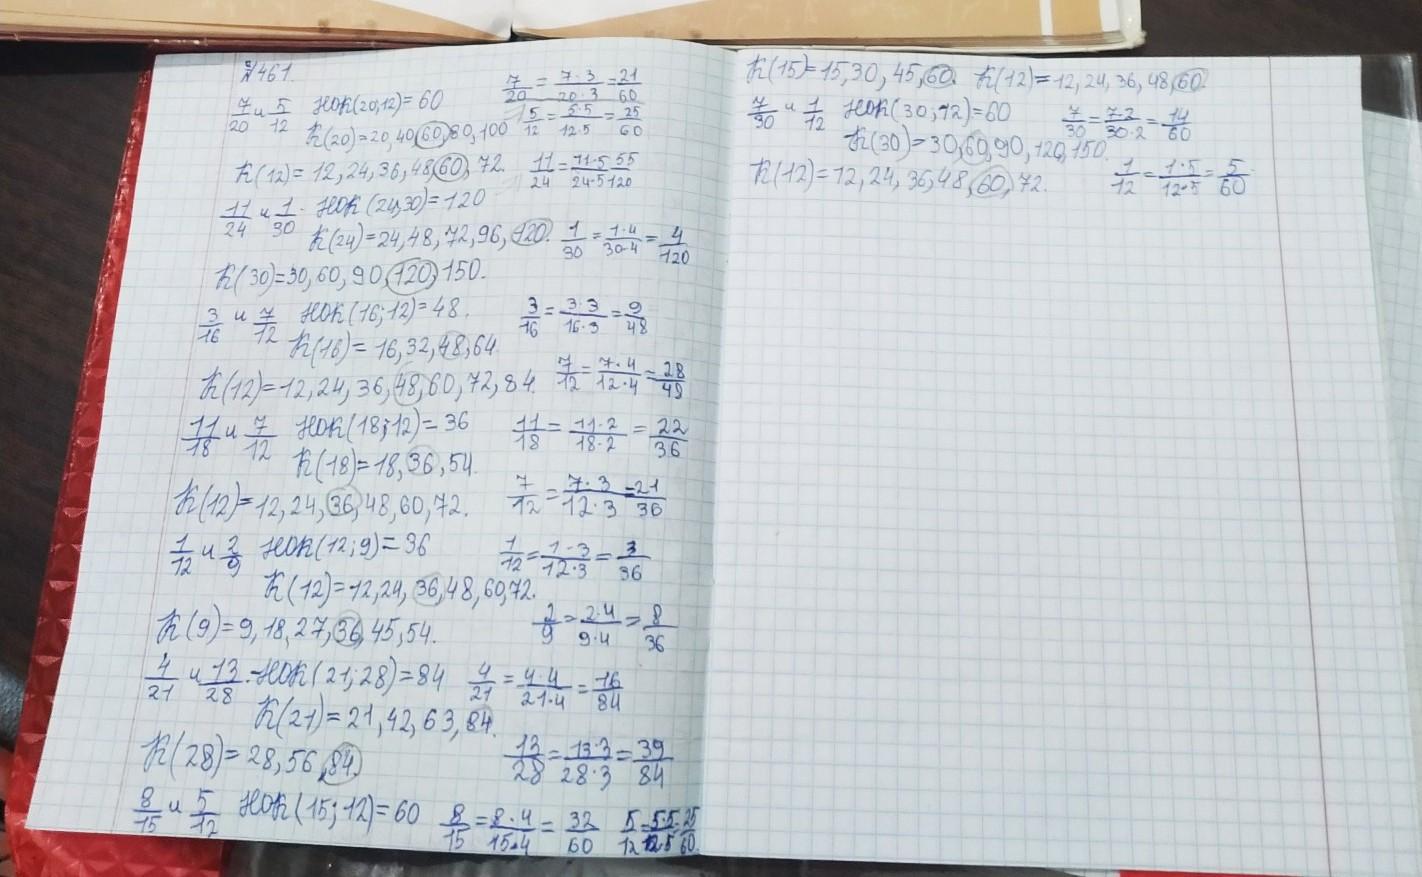 №461.
7/20 и 5/12 НОК(20,12)=60 7/20=7·3/20·3=21/60
К(20)=20,40,60,80,100 5/12=5·5/12·5=25/60
К(12)=12,24,36,48,60,72. 11/24=11·5/24·5=55/120
11/24 и 1/30. НОК(24,30)=120
К(24)=24,48,72,96,120. 1/30=1·4/30·4=4/120
К(30)=30,60,90,120,150.
3/16 и 7/12 НОК(16;12)=48. 3/16=3·3/16·3=9/48
К(16)=16,32,48,64.
К(12)=12,24,36,48,60,72,84. 7/12=7·4/12·4=28/48
11/18 и 7/12 НОК(18;12)=36 11/18=11·2/18·2=22/36
К(18)=18,36,54.
К(12)=12,24,36,48,60,72. 7/12=7·3/12·3=21/36
1/12 и 2/9 НОК(12;9)=36 1/12=1·3/12·3=3/36
К(12)=12,24,36,48,60,72.
К(9)=9,18,27,36,45,54. 2/9=2·4/9·4=8/36
4/21 и 13/28. НОК(21;28)=84 4/21=4·4/21·4=16/84
К(21)=21,42,63,84.
К(28)=28,56,84. 13/28=13·3/28·3=39/84
8/15 и 5/12 НОК(15;12)=60 8/15=8·4/15·4=32/60 5/12=5·5/12·5=25/60.
К(15)=15,30,45,60. К(12)=12,24,36,48,60.
7/30 и 1/12 НОК(30;12)=60 7/30=7·2/30·2=14/60
К(30)=30,60,90,120,150.
К(12)=12,24,36,48,60,72. 1/12=1·5/12·5=5/60.